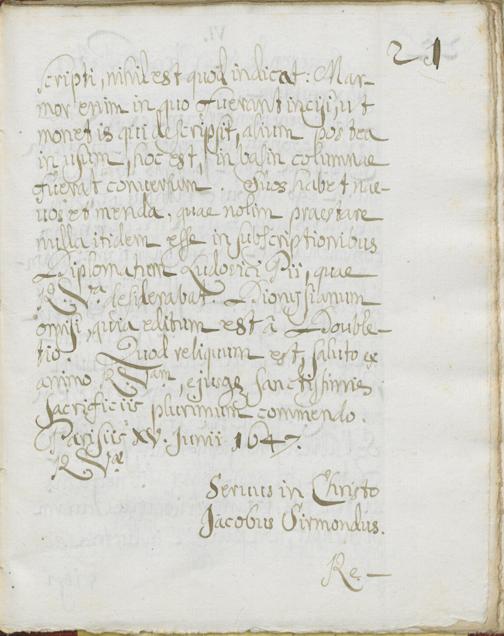 21
scripti, nihil est quod indicat. Mar-
mor enim in quo fuerant incisi, ut
monet is qui descripsit, alium postea
in usum, hoc est, in basin columnae
fuerat conversum. Suos habet nae-
vos et menda, quae nolim praestare
nulla itidem esse in subscriptionibus
Diplomatum Ludovici Pii, quae
R. Vra desiderabat. Dionysianum
omisi, quia editum est â Double-
tio. Quod reliquum est, saluto ex
animo R. Vam, ejusq sanctissimis
sacrificiis plurimum commendo.
Parisiis XV. Junii 1647.
R. Vae
Servus in Christo
Jacobus Sirmondus.
Re-